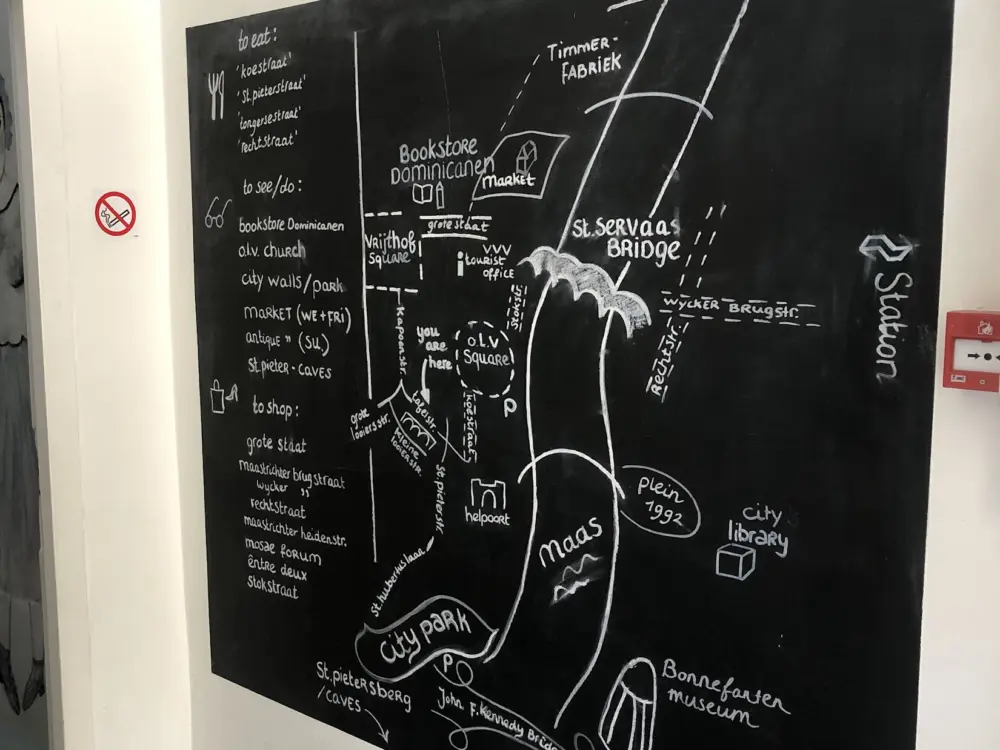 to eat:
'koestraat'
'st.pieterstraat'
'tongersestraat'
'rechtstraat'
to see/do:
bookstore Dominicanen
o.l.v. church
city walls/park
MARKET (WE+FRi)
antique " (su.)
St.pieter-CAVES
to shop:
grote staat
maastrichter brugstraat
wycker "
rechtstraat
maastrichter heidenstr.
mosae forum
êntre deux
Stokstraat
TIMMER-
FABRIEK
BOOKSTORE
DOMINICANEN
MARKET
grote staat
Vrijthof
Square
VVV
i tourist
office
St.SERVAAS
BRIDGE
Stokstr.
WYCKER BRUGstr.
Rechtstr.
Station
Kapoenstr.
you
are
here
o.l.v
Square
P
grote
looiersstr.
tafelstr.
kleine
looierstr.
koestraat
St.pieterstr.
helpoort
plein
1992
city
library
maas
st.hubertuslaan
City PARK
P
St.pietersberg
/CAVES
John F.Kennedy Bridge
Bonnefanten
museum